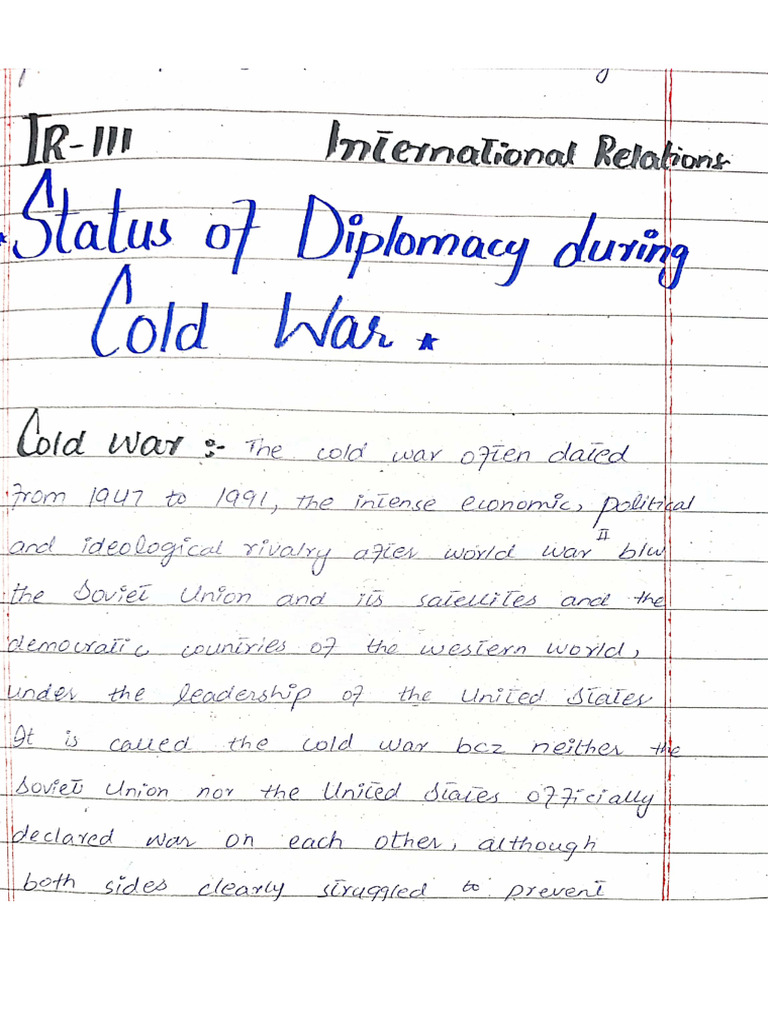 IR-III International Relations
* Status of Diplomacy during
Cold War *
Cold war :- The cold war often dated
from 1947 to 1991, the intense economic, political
and ideological rivalry after world war II b/w
the Soviet Union and its satellites and the
democratic countries of the western world,
under the leadership of the United States
It is called the cold war bcz neither the
Soviet Union nor the United States officially
declared war on each other, although
both sides clearly struggled to prevent